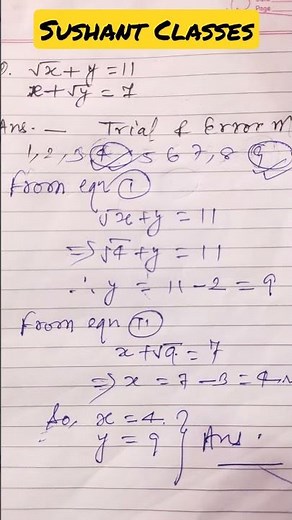 Sushant Classes
Date
Page
√x + y = 11
x + √y = 7
Ans. — Trial & Error M
1, 2, 3 4 5 6 7, 8 9
From eqn I
√x + y = 11
⇒ √4 + y = 11
∴ y = 11 - 2 = 9
From eqn II
x + √9 = 7
⇒ x = 7 - 3 = 4
So, x = 4
y = 9 } Ans.